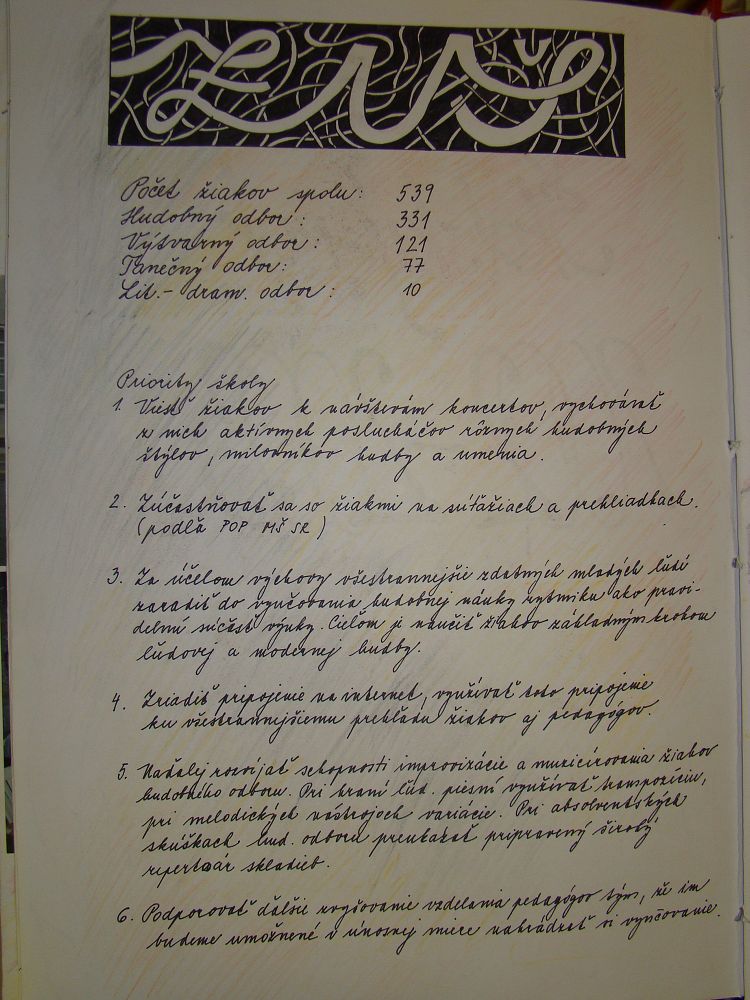 ZUŠ
Počet žiakov spolu: 539
Hudobný odbor: 331
Výtvarný odbor: 121
Tanečný odbor: 77
Lit.- dram. odbor: 10
Priority školy
1. Viesť žiakov k návštevám koncertov, vychovávať
z nich aktívnych poslucháčov rôznych hudobných
štýlov, milovníkov hudby a umenia.
2. Zúčastňovať sa so žiakmi na súťažiach a prehliadkach.
(podľa POP MŠ SR)
3. Za účelom výchovy všestrannejšie zdatných mladých ľudí
zaradiť do vyučovania hudobnej náuky rytmiku ako pravi-
delnú súčasť výuky. Cieľom je naučiť žiakov základným krokom
ľudovej a modernej hudby.
4. Zriadiť pripojenie na internet, využívať toto pripojenie
ku všestrannejšiemu prehľadu žiakov aj pedagógov.
5. Naďalej rozvíjať schopnosti improvizácie a muzicírovania žiakov
hudobného odboru. Pri hraní ľud. piesní využívať transpozíciu,
pri melodických nástrojoch variácie. Pri absolventských
skúškach hud. odboru preukázať pripravený široký
repertoár skladieb.
6. Podporovať ďalšie zvyšovanie vzdelania pedagógov tým, že im
budeme umožnené v únosnej miere nahrádzať si vyučovanie.